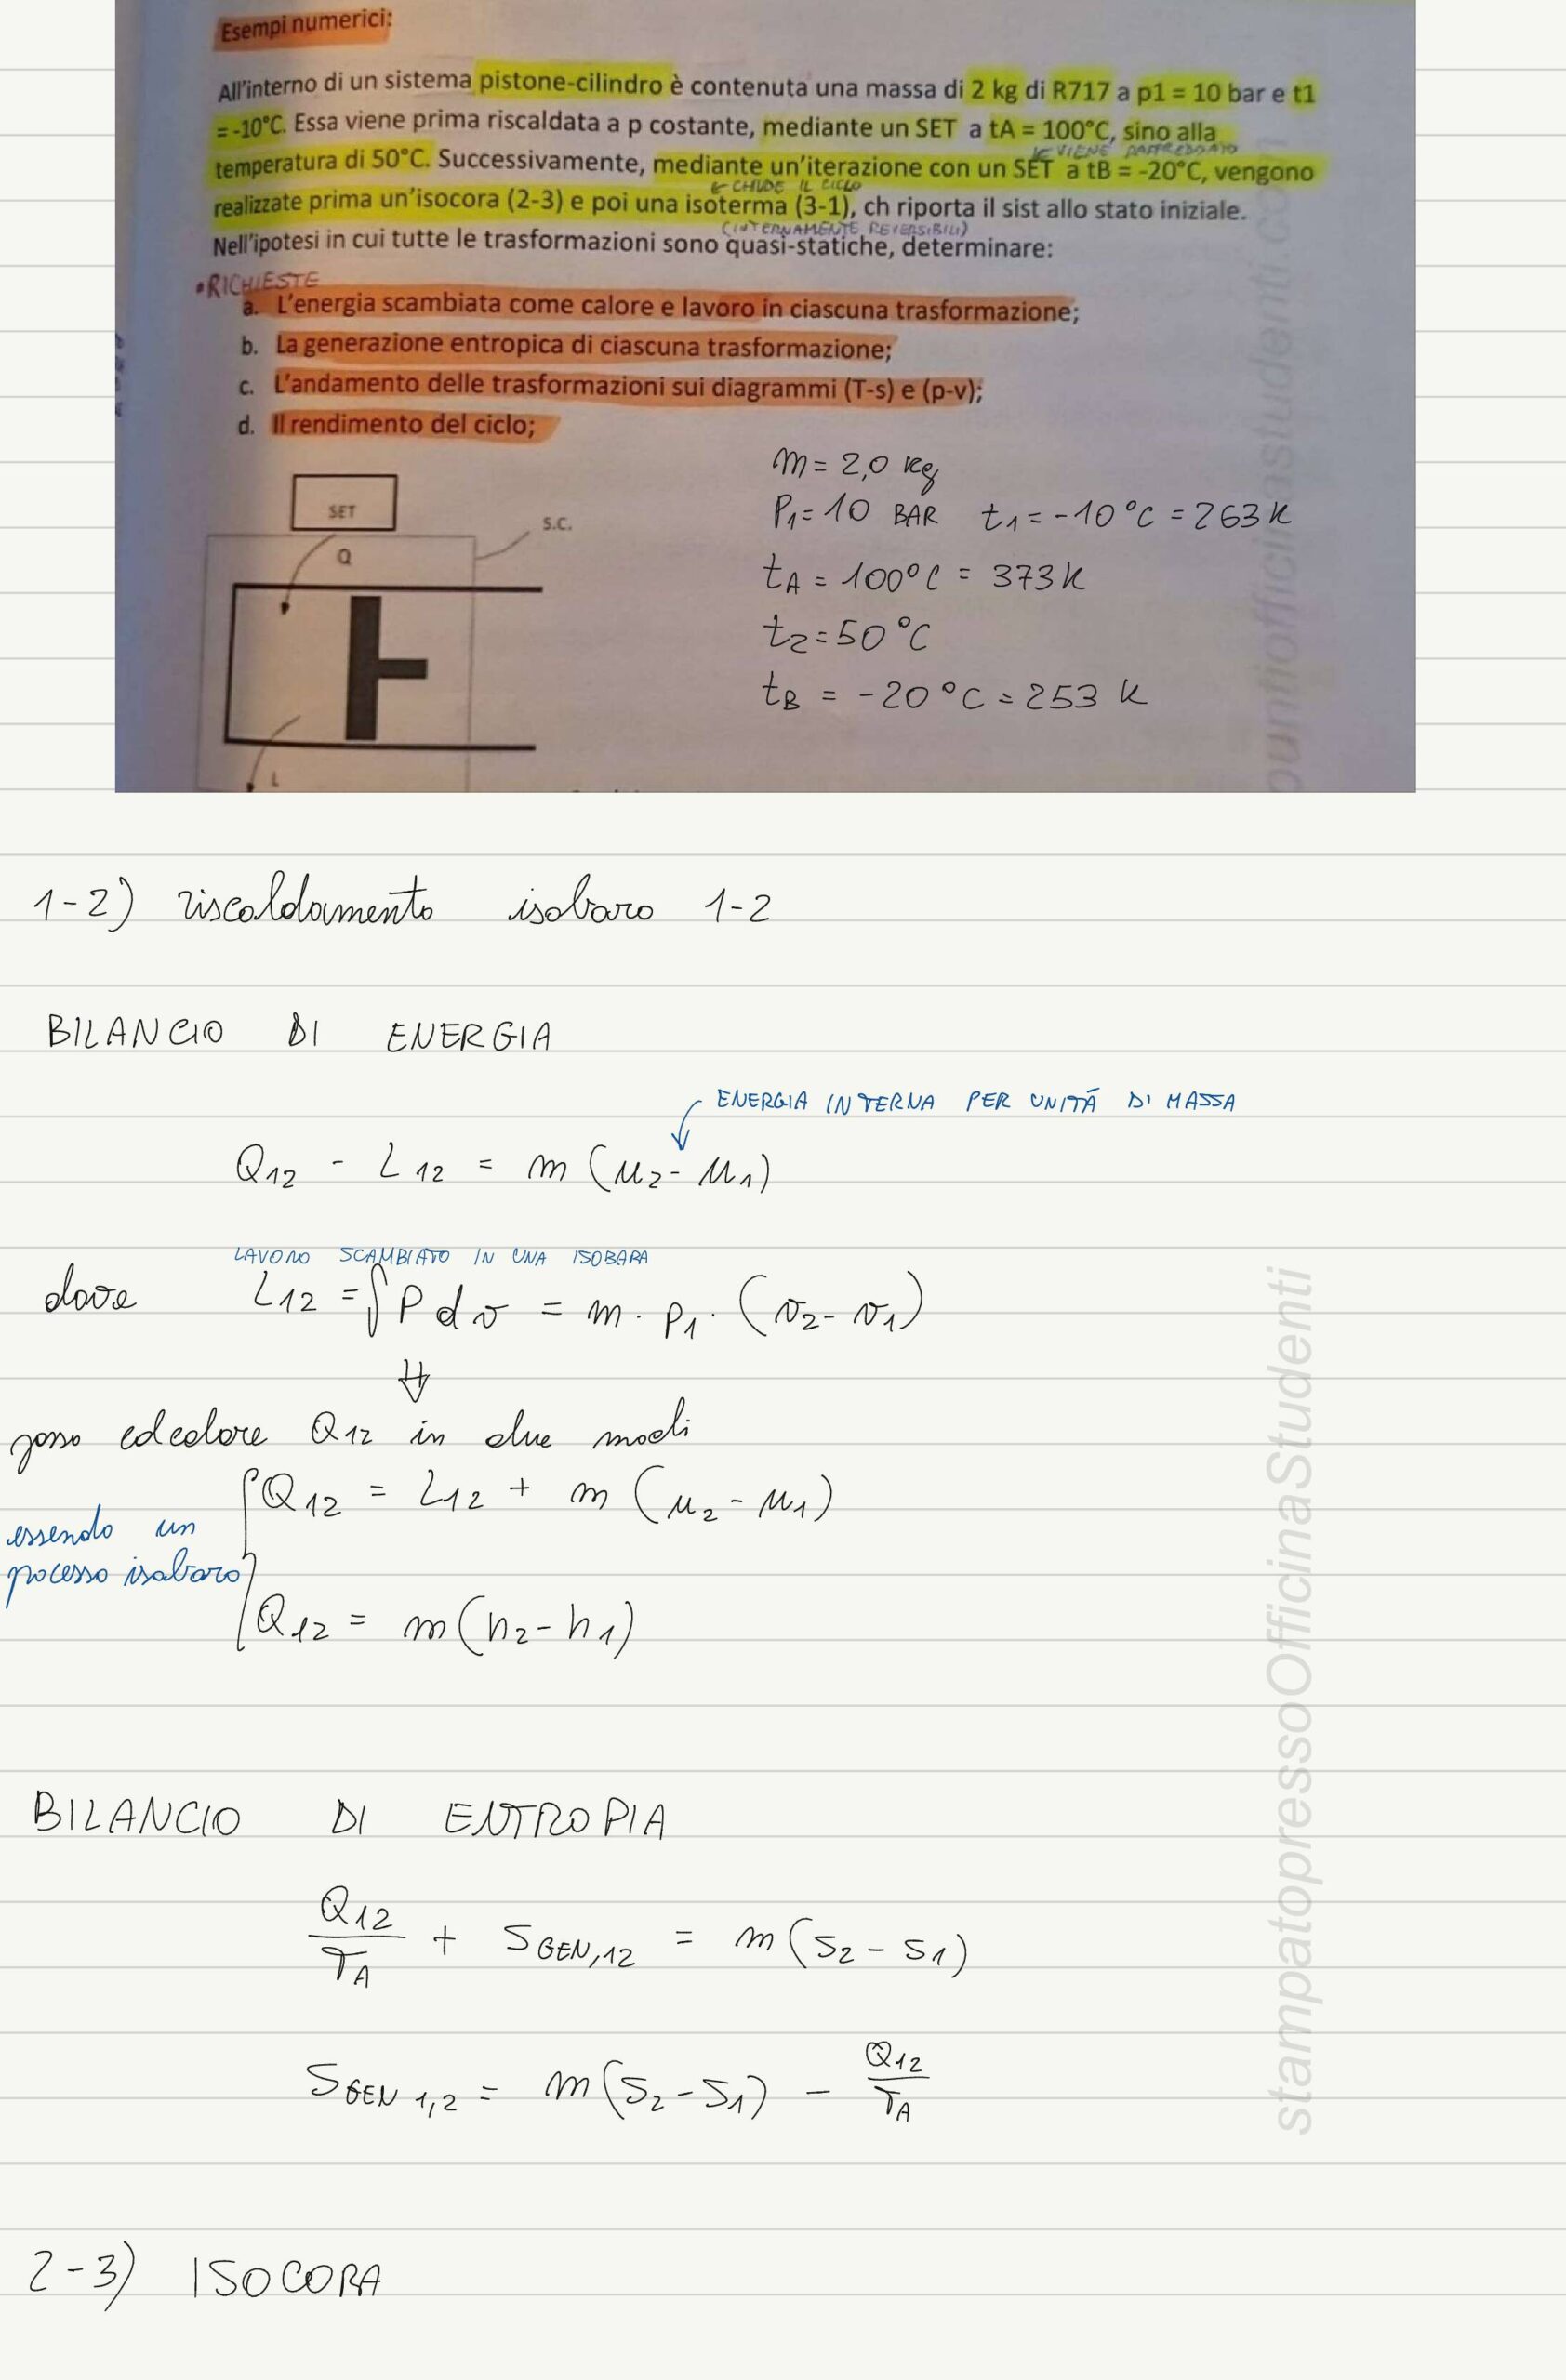 Esempi numerici:
All'interno di un sistema pistone-cilindro è contenuta una massa di 2 kg di R717 a p1 = 10 bar e t1
= -10°C. Essa viene prima riscaldata a p costante, mediante un SET a tA = 100°C, sino alla
← VIENE RAFFREDDATO
temperatura di 50°C. Successivamente, mediante un'iterazione con un SET a tB = -20°C, vengono
← CHIUDE IL CICLO
realizzate prima un'isocora (2-3) e poi una isoterma (3-1), ch riporta il sist allo stato iniziale.
(INTERNAMENTE REVERSIBILI)
Nell'ipotesi in cui tutte le trasformazioni sono quasi-statiche, determinare:
•RICHIESTE
a. L'energia scambiata come calore e lavoro in ciascuna trasformazione;
b. La generazione entropica di ciascuna trasformazione;
c. L'andamento delle trasformazioni sui diagrammi (T-s) e (p-v);
d. Il rendimento del ciclo;
m = 2,0 kg
P1 = 10 BAR t1 = -10°C = 263 K
tA = 100°C = 373 K
t2 = 50°C
tB = -20°C = 253 K
SET
S.C.
Q
L
1-2) riscaldamento isobaro 1-2
BILANCIO DI ENERGIA
ENERGIA INTERNA PER UNITÀ DI MASSA
Q12 - L12 = m (u2 - u1)
LAVORO SCAMBIATO IN UNA ISOBARA
dove L12 = ∫ P dv = m · p1 · (v2 - v1)
⇓
posso calcolare Q12 in due modi
Q12 = L12 + m (u2 - u1)
essendo un
pocesso isobaro
Q12 = m (h2 - h1)
BILANCIO DI ENTROPIA
Q12/TA + SGEN,12 = m (s2 - s1)
SGEN 1,2 = m (s2 - s1) - Q12/TA
2-3) ISOCORA
stampatopressoOfficinaStudenti